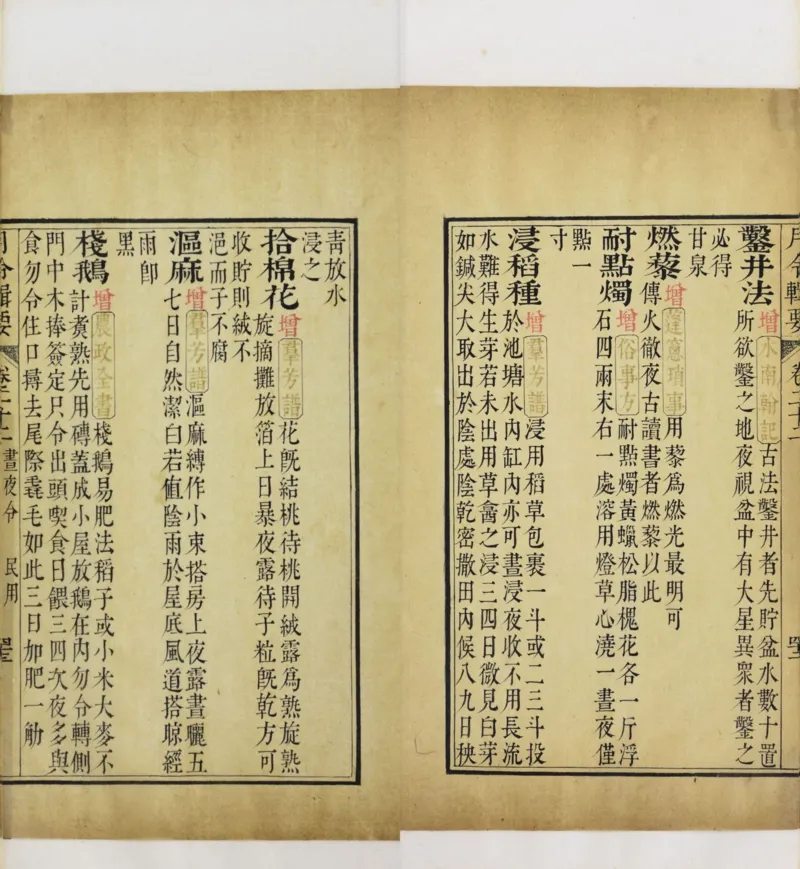 月令輯要 卷二十二
鑿井法 增 水南翰記 古法鑿井者先貯盆水數十置
所欲鑿之地夜視盆中有大星異衆者鑿之
必得
甘泉
燃藜 增 瑣事 用藜爲燃光最明可
傳火徹夜古讀書者燃藜以此
耐點燭 增 俗事方 耐點燭黃蠟松脂槐花各一斤浮
石四兩末右一處溶用燈草心澆一晝夜僅
點一
寸
浸稻種 增 羣芳譜 浸用稻草包裹一斗或二三斗投
於池塘水內缸內亦可晝浸夜收不用長流
水難得生芽若未出用草畣之浸三四日微見白芽
如鍼尖大取出於陰處陰乾密撒田內候八九日秧
青放水
浸之
拾棉花 增 羣芳譜 花旣結桃待桃開絨露爲熟旋熟
旋摘攤放箔上日暴夜露待子粒旣乾方可
收貯則絨不
浥而子不腐
漚麻 增 羣芳譜 漚麻縛作小束搭房上夜露晝曬五
七日自然潔白若值陰雨於屋底風道搭晾經
雨卽
黑
棧鵝 增 農政全書 棧鵝易肥法稻子或小米大麥不
計煑熟先用磚蓋成小屋放鵝在內勿令轉側
門中木捧簽定只令出頭喫食日餵三四次夜多與
食勿令住口撏去尾際毳毛如此三日加肥一觔
月令輯要 卷二十二 晝夜令 民用